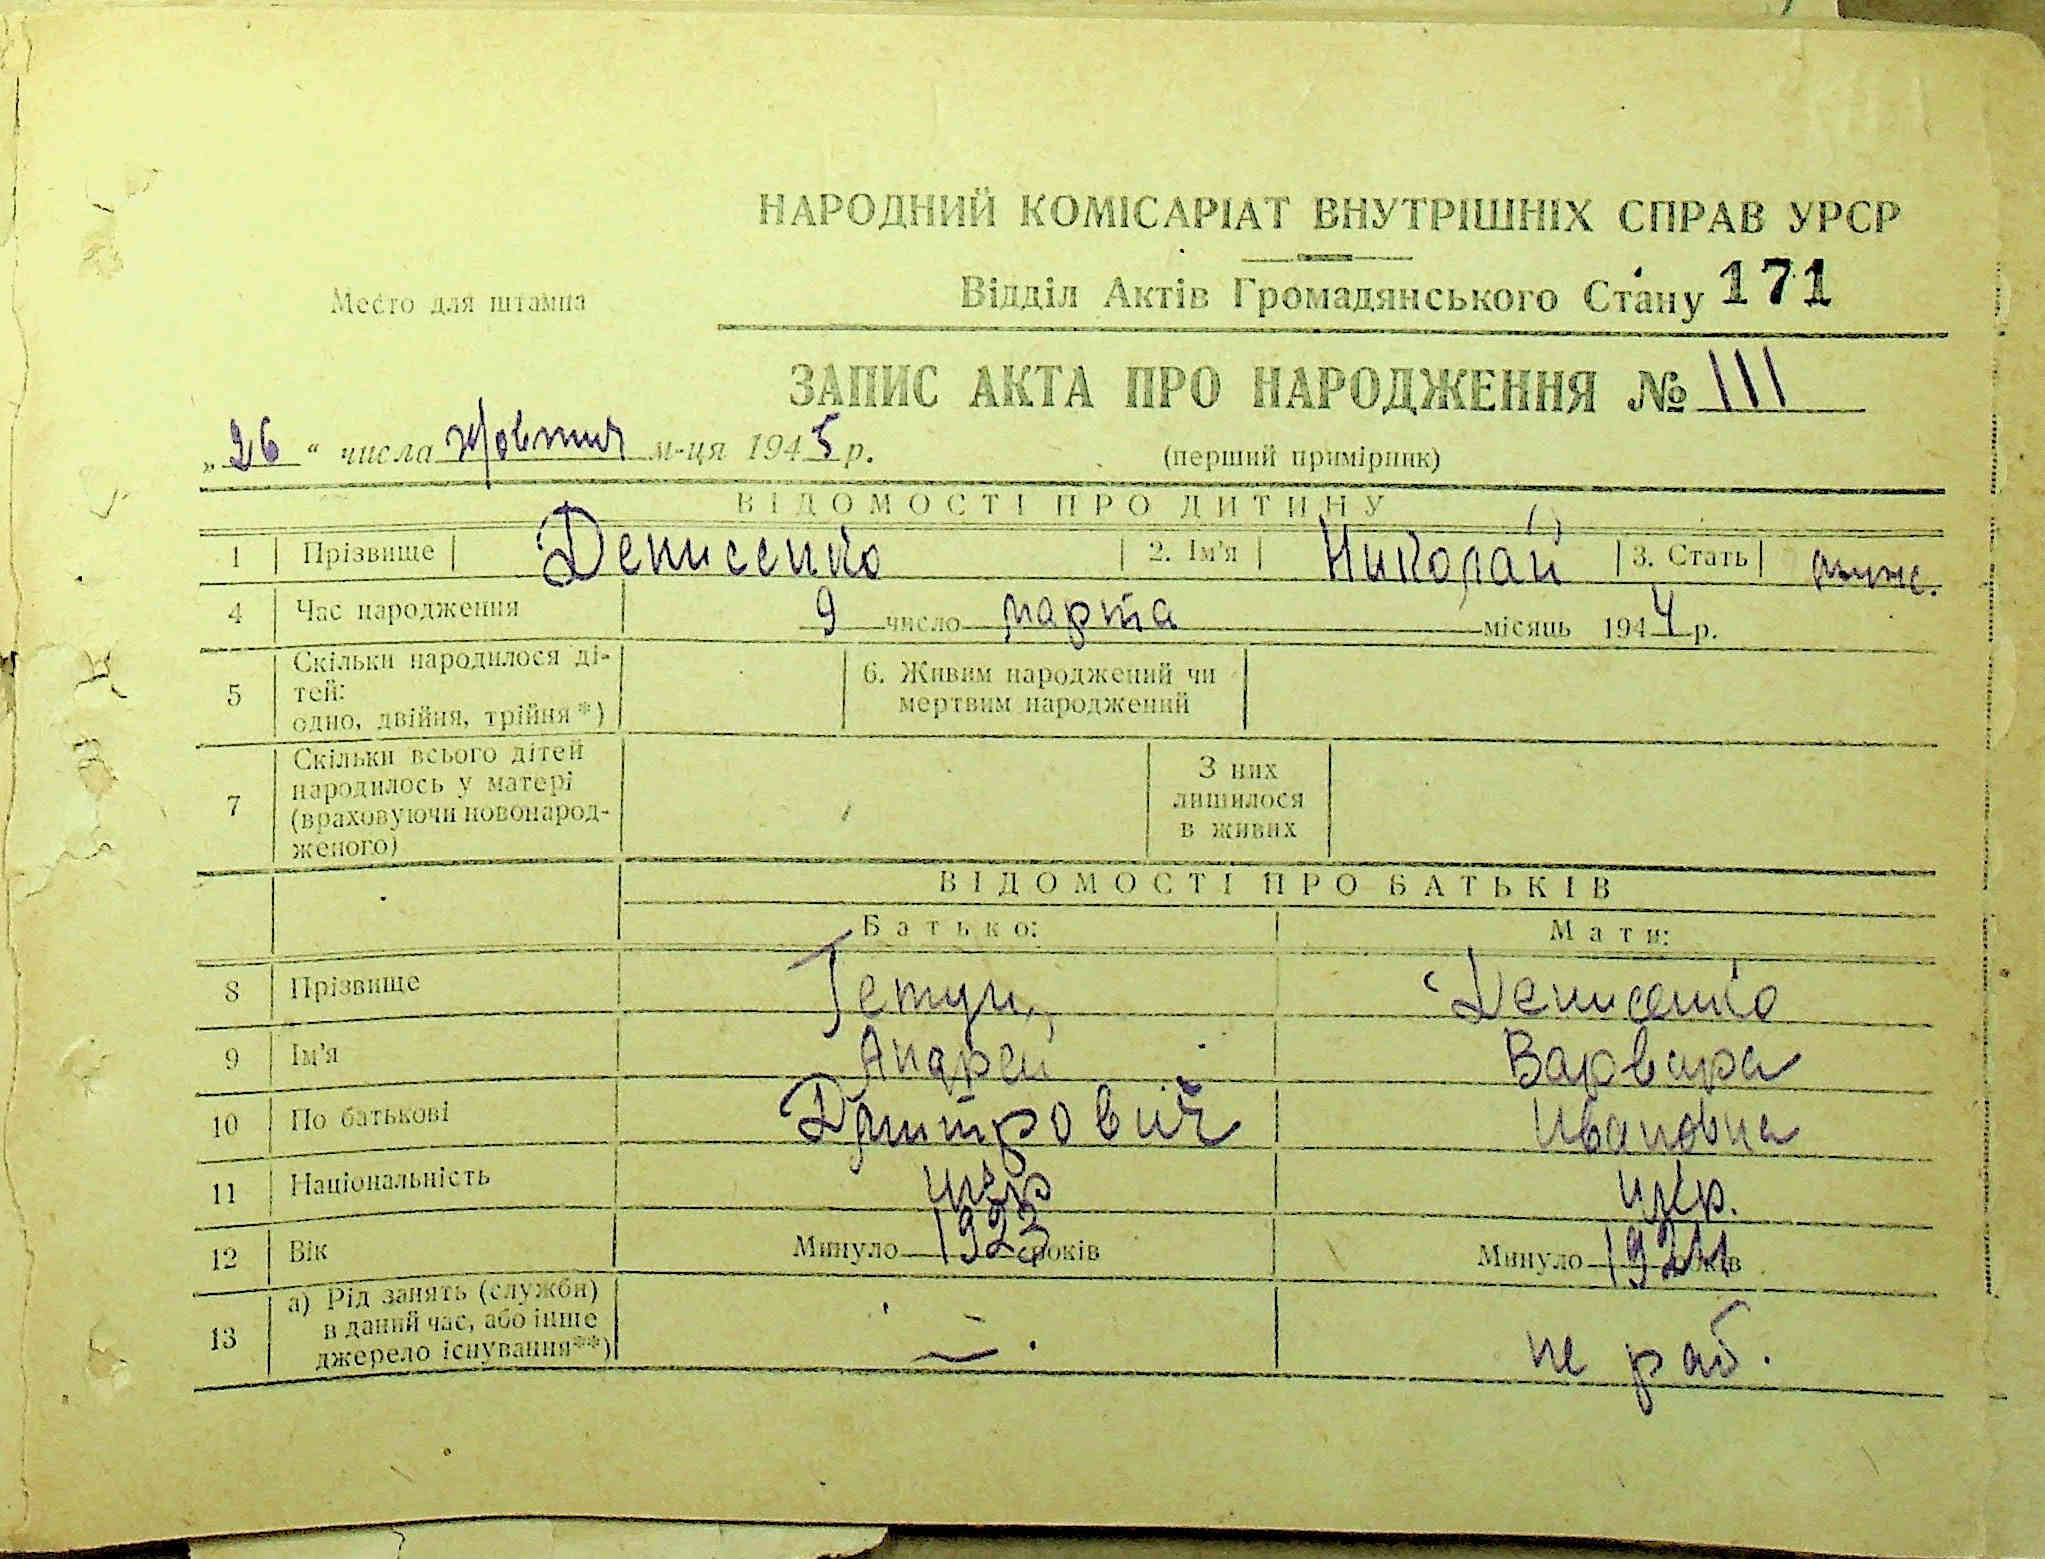 НАРОДНИЙ КОМІСАРІАТ ВНУТРІШНІХ СПРАВ УРСР
Место для штампа
Відділ Актів Громадянського Стану 171
ЗАПИС АКТА ПРО НАРОДЖЕННЯ № 111
„26“ числа жовтня м-ця 1945 р.
(перший примірник)
ВІДОМОСТІ ПРО ДИТИНУ
1 Прізвище Денисенко 2. Ім'я Николай 3. Стать муж.
4 Час народження 9 число марта місяць 1944 р.
5 Скільки народилося ді-
тей:
одно, двійня, трійня*)
6. Живим народжений чи
мертвим народжений
7 Скільки всього дітей
народилось у матері
(враховуючи новонарод-
женого)
З них
лишилося
в живих
ВІДОМОСТІ ПРО БАТЬКІВ
Батько: Мати:
8 Прізвище Гетун Денисенко
9 Ім'я Андрей Варвара
10 По батькові Дмитрович Ивановна
11 Національність укр укр.
12 Вік Минуло 1923 років Минуло 1924 років
13 а) Рід занять (служби)
в даний час, або інше
джерело існування**)
— не раб.